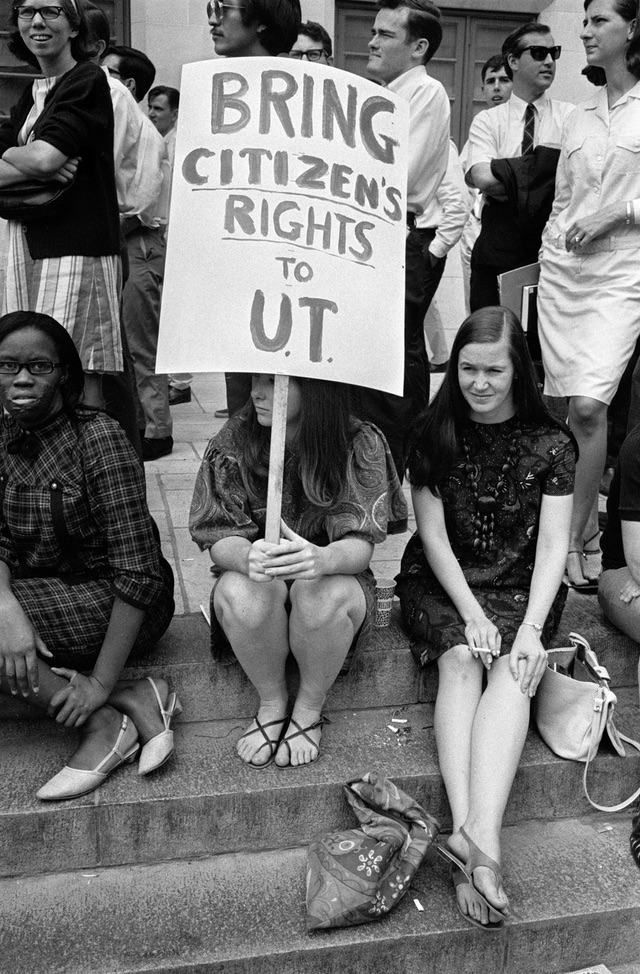 BRING
CITIZEN'S
RIGHTS
TO
U.T.